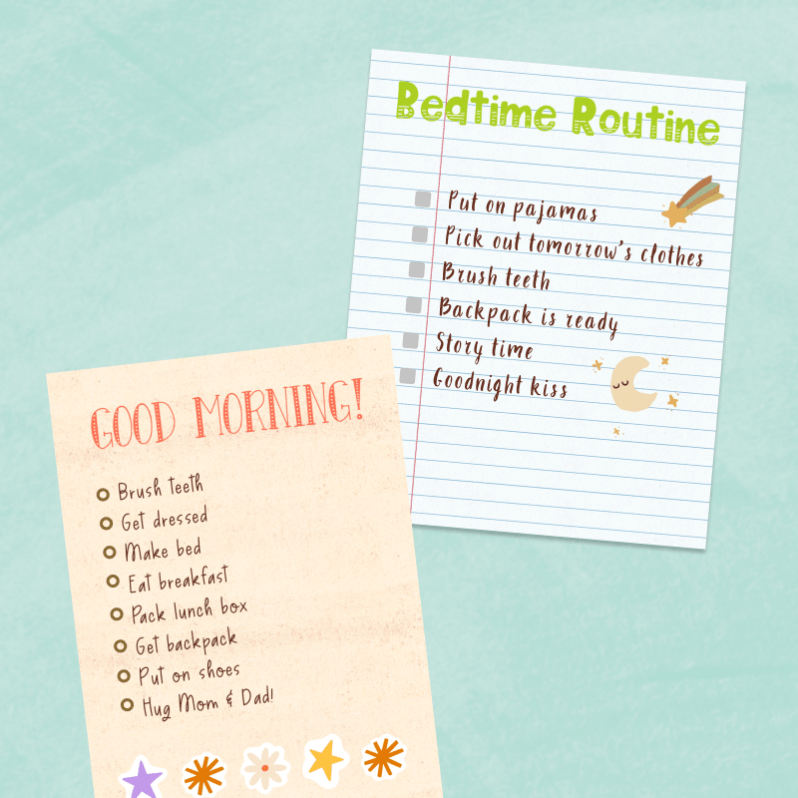 Bedtime Routine
Put on pajamas
Pick out tomorrow's clothes
Brush teeth
Backpack is ready
Story time
Goodnight kiss
GOOD MORNING!
Brush teeth
Get dressed
Make bed
Eat breakfast
Pack lunch box
Get backpack
Put on shoes
Hug Mom & Dad!